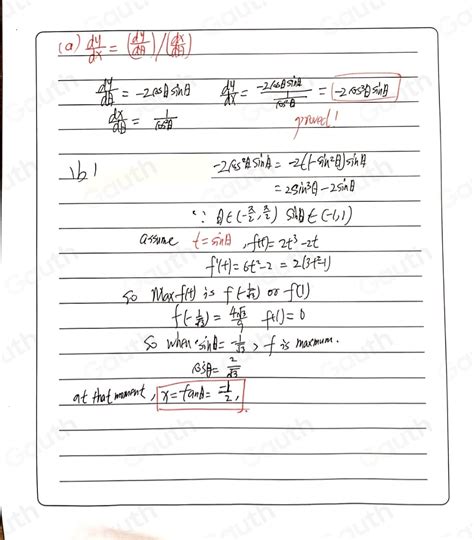 (a) dy/dx = (dy/dθ)/(dx/dθ)
dy/dθ = -2cosθsinθ dy/dx = -2cosθsinθ / (1/cos²θ) = -2cos³θsinθ
dx/dθ = 1/cos²θ proved!
1b1 -2cos²θsinθ = -2(1-sin²θ)sinθ
= 2sin³θ-2sinθ
∵ θ∈(-π/2, π/2) sinθ∈(-1,1)
assume t=sinθ, f(t)=2t³-2t
f'(t)=6t²-2=2(3t²-1)
So Max f(t) is f(-1/√3) or f(1)
f(-1/√3) = 4√3/9 f(1)=0
So when sinθ=-1/√3, f is maxmum.
cosθ=2/√3
at that moment, x=tanθ=-1/2,
Gauth